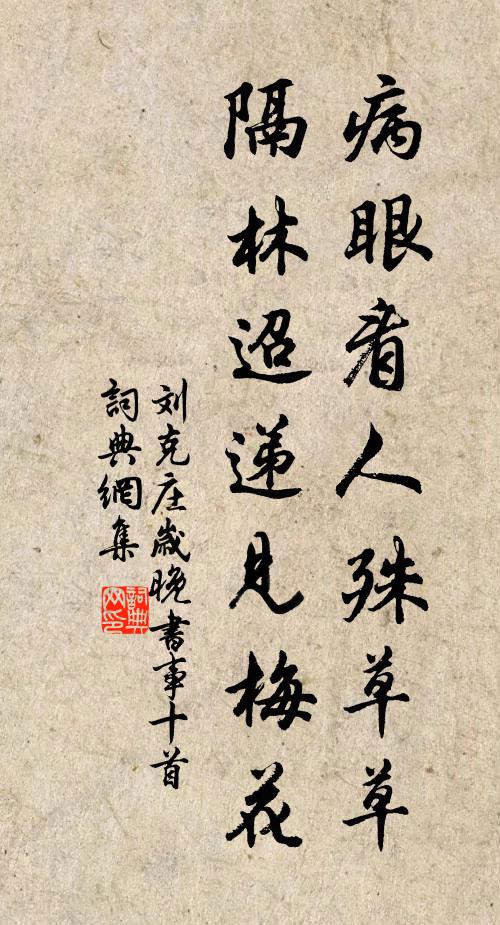 病眼看人殊草草
隔林迢递見梅花
刘克庄歲晚書事十首
詞典網集
詞典
网印